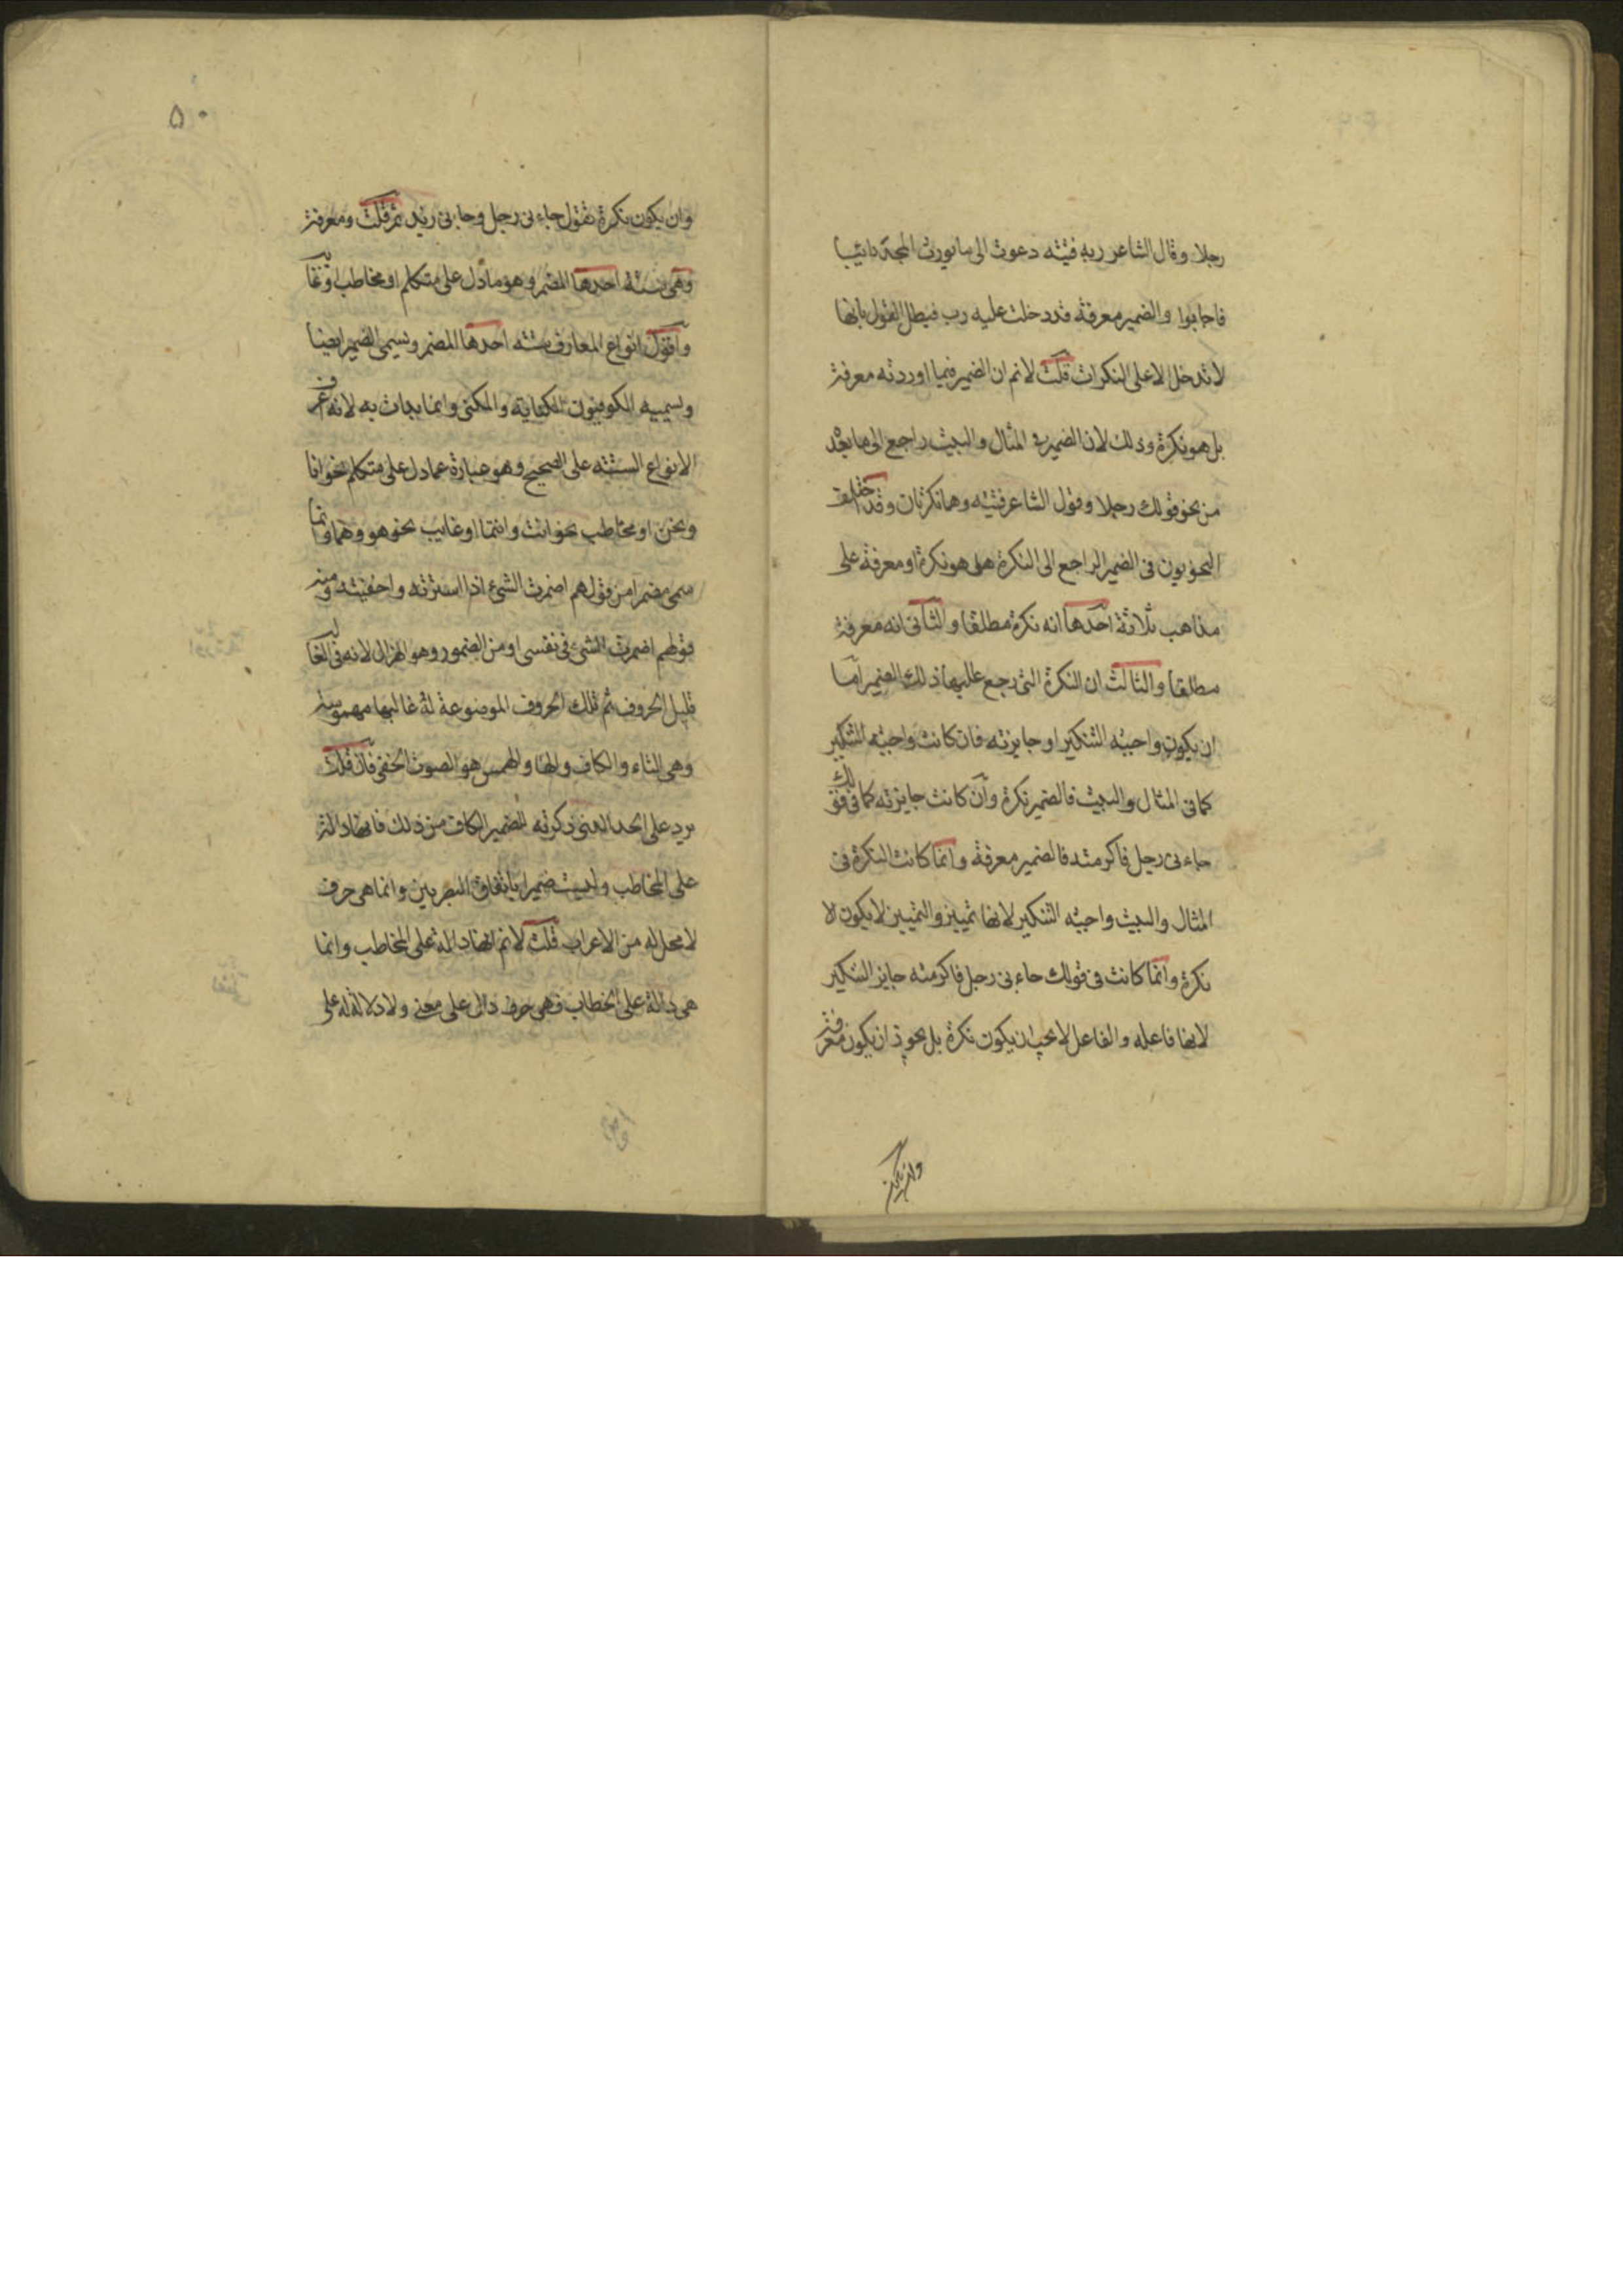 رجلا وقال الشاعر ربه فتيه دعوت الى ما يورث المجد دائبا
فاجابوا والضمير معرفة قد دخلت عليه رب فبطل القول بانها
لا تدخل الا على النكرات قلت لا نم ان الضمير فيما اوردته معرفة
بل هو نكرة وذلك لان الضمير في المثال والبيت راجع الى ما بعده
من نحو قولك رجلا وقول الشاعر فتيه وهما نكرتان وقد اختلف
النحويون في الضمير الراجع الى النكرة هل هو نكرة او معرفة على
مذاهب ثلاثة احدها انه نكرة مطلقا والثاني انه معرفة
مطلقا والثالث ان النكرة التي رجع عليها ذلك الضمير اما
ان يكون واجبه التنكير او جايزته فان كانت واجبه التنكير
كما في المثال والبيت فالضمير نكرة وان كانت جايزته كما في قولك
جاءني رجل فاكرمته فالضمير معرفة وانما كانت النكرة في
المثال والبيت واجبه التنكير لانها تمييز والتمييز لا يكون الا
نكرة وانما كانت في قولك جاءني رجل فاكرمته جايز التنكير
لانها فاعله والفاعل لا يجب ان يكون نكرة بل يجوز ان يكون معرفة
وان يكون
٥٠
وان يكون نكرة تقول جاءني رجل وجاءني زيد ثم قلت ومعرفة
وهي ستة احدها المضمر وهو ما دل على متكلم او مخاطب او غا
واقول انواع المعارف ستة احدها المضمر ويسمى الضمير ايضا
ويسميه الكوفيون الكناية والمكنى وانما بدات به لانه اعرف
الانواع الستة على الصحيح وهو عبارة عما دل على متكلم نحو انا
ونحن او مخاطب نحو انت وانتما او غايب نحو هو وهما وانما
سمي مضمرا من قولهم اضمرت الشيء اذا سترته واخفيته ومنه
قولهم اضمرت الشيء في نفسي او من الضمور وهو الهزال لانه في الغا
قليل الحروف ثم تلك الحروف الموضوعة له غالبها مهموسة
وهي التاء والكاف والها والهمس هو الصوت الخفي فان قلت
يرد على الحد الذي ذكرته للضمير الكاف من ذلك فانها دالة
على المخاطب وليست ضميرا باتفاق البصريين وانما هي حرف
لا محل له من الاعراب قلت لا نم انها دالة على المخاطب وانما
هي دالة على الخطاب فهي حرف دال على معنى ولا دلالة له على